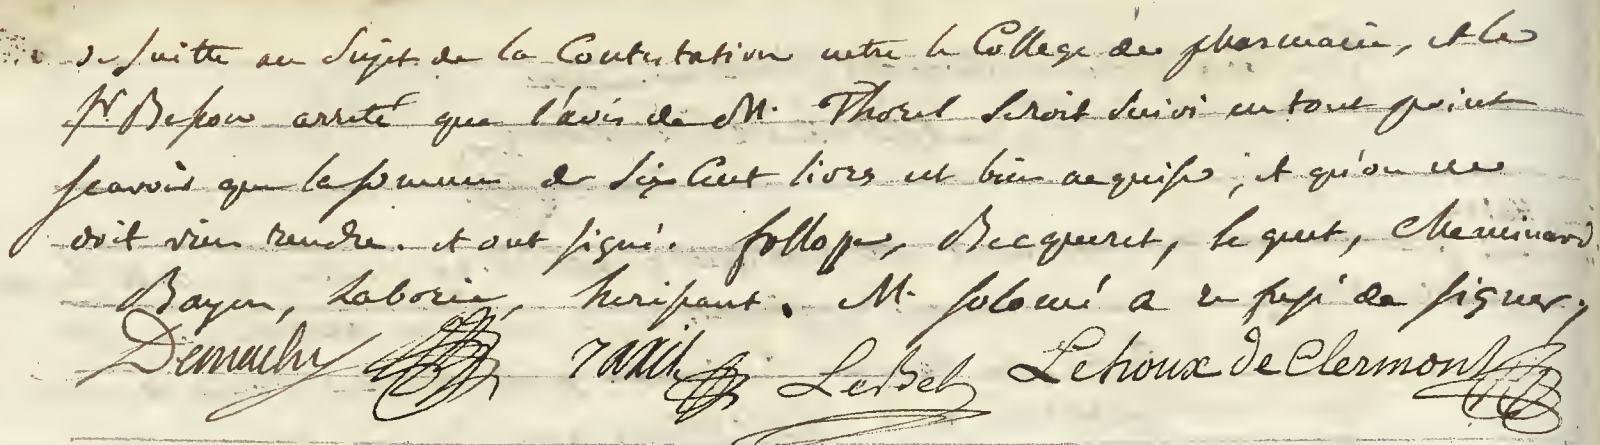 de suitte au sujet de la Contestation entre le College de pharmacie, et le
Sr Besson arreté que l'avis de M. Thorel seroit suivi en tout point
scavoir que la somme de Six Cent livres est bien acquise, et qu'on ne
doit rien rendre. et ont signé. follope, Becqueret, le guet, Cheminard
Bayen, Laborie, herissant. M. solomé a refusé de signer,
Demachy Taxil LeBel Lehoux de Clermont